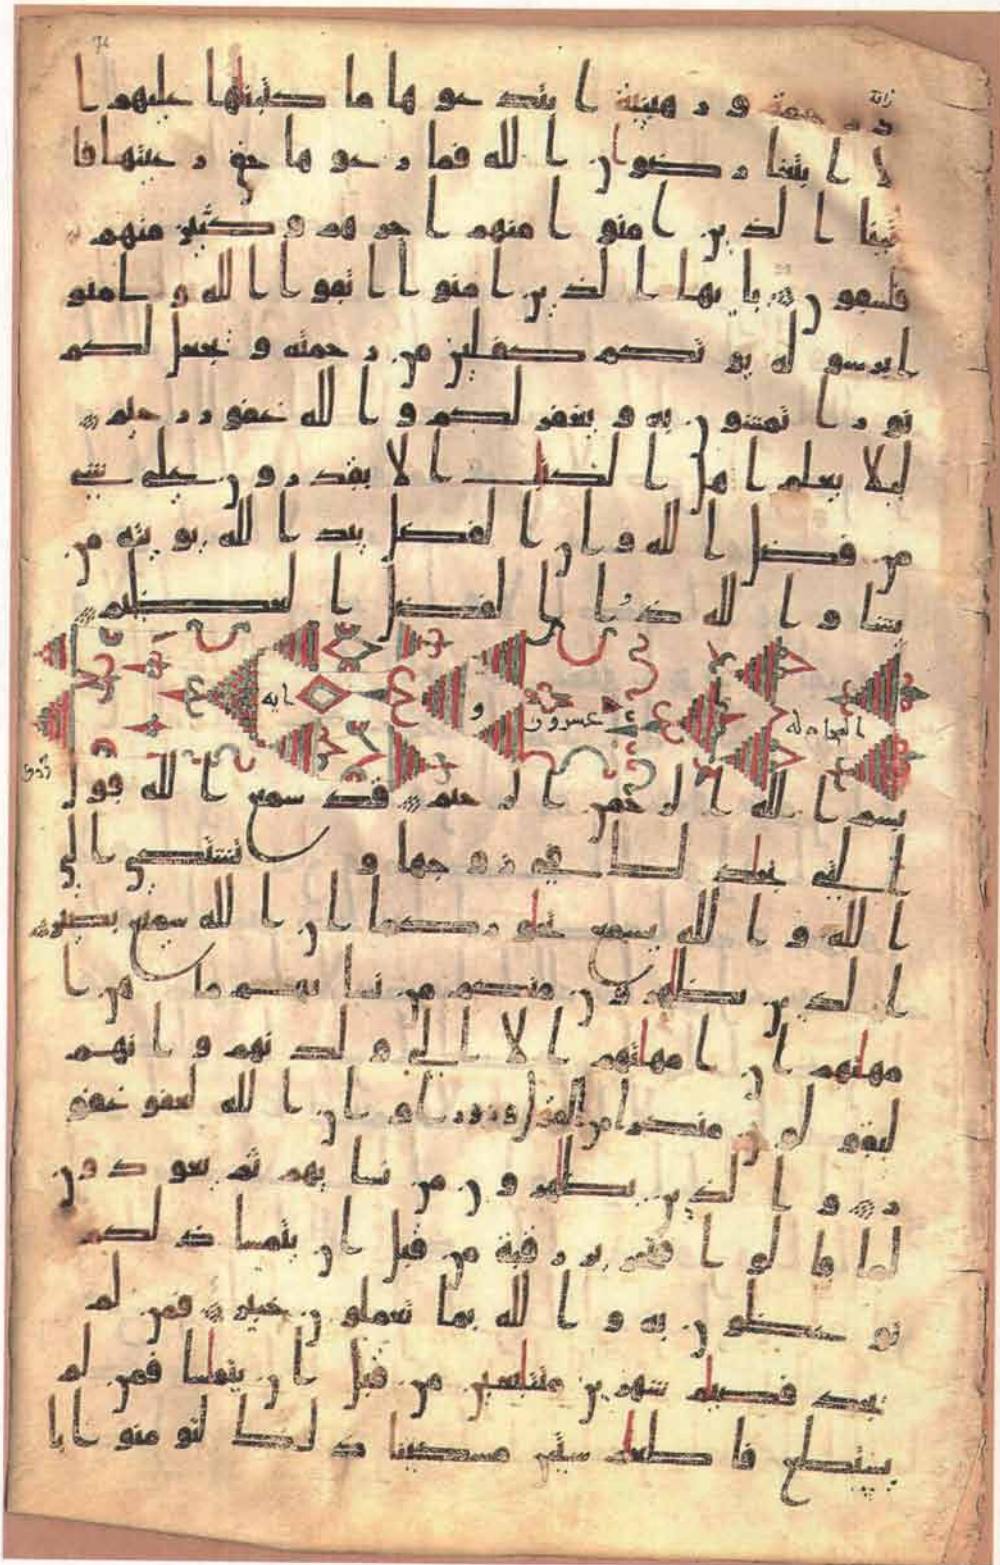 رحمة و رهبنية ابتدعوها ما كتبنها عليهم ا
لا ابتغا رضون الله فما رعوها حق رعيتها فا
تينا الذين امنوا منهم اجرهم و كثير منهم
فسقون يايها الذين امنوا اتقوا الله و امنو
ا برسوله يوتكم كفلين من رحمته و يجعل لكم
نورا تمشون به و يغفر لكم و الله غفور رحيم
ليلا يعلم اهل الكتب الا يقدرون على شى
من فضل الله و ان الفضل بيد الله يوتيه من
يشا و الله ذوا الفضل العظيم
المجادله عسرون و ايه
بسم الله الرحمن الرحيم قد سمع الله قول
التي تجدلك في زوجها و تشتكي الى
الله و الله يسمع تحوركما ان الله سميع بصير
الذين يظهرون منكم من نسايهم ما هن ا
مهتهم ان امهتهم الا الي ولدنهم و انهم
ليقولون منكرا من القول و زورا و ان الله لعفو غفو
ر و الذين يظهرون من نسايهم ثم يعودون
لما قالوا فتحرير رقبة من قبل ان يتماسا ذلكم
توعظون به و الله بما تعملون خبير فمن لم
يجد فصيم شهرين متتابعين من قبل ان يتماسا فمن لم
يستطع فاطعم ستين مسكينا ذلك لتومنوا با